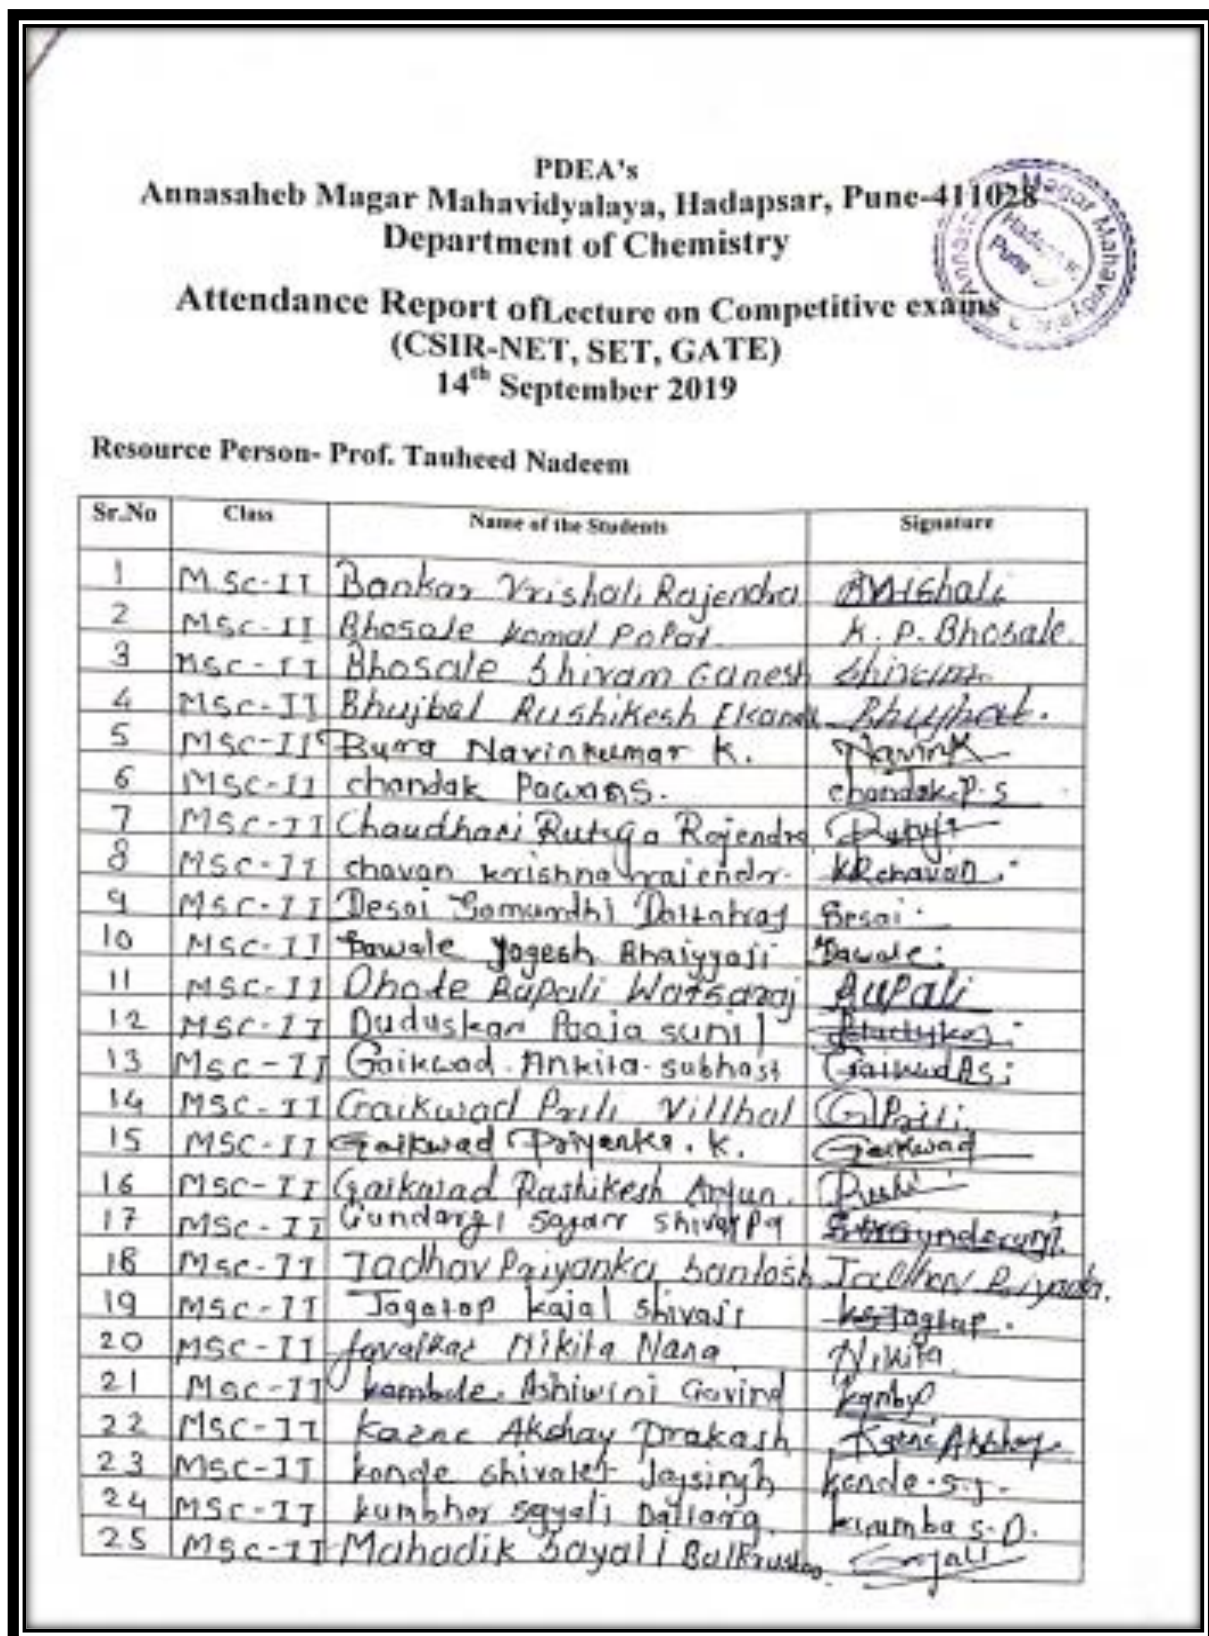 PDEA's
Annasaheb Magar Mahavidyalaya, Hadapsar, Pune-411028
Department of Chemistry
Attendance Report ofLecture on Competitive exams
(CSIR-NET, SET, GATE)
14th September 2019
Resource Person- Prof. Tauheed Nadeem
Sr.No Class Name of the Students Signature
1 M.SC-II Bankar Vrishali Rajendra
2 MSC-II Bhosale Komal Popat K. P. Bhosale.
3 MSC-II Bhosale Shivam Ganesh Shivam
4 MSC-II Bhujbal Rushikesh Bhujbal.
5 MSC-II Bura Navinkumar K. NavinK
6 MSC-II chandak chandak.P.S
7 MSC-II Chaudhari Rajendra
8 MSC-II chavan krishna rajendr. KRchavan
9 MSC-II Desai Desai
10 MSC-II Yogesh Bhaiyyaji
11 MSC-II Dhote Rupali Rupali
12 MSC-II Duduskar Pooja sunil
13 MSC-II Gaikwad Ankita subhash GaikwadAS
14 MSC-II Gaikwad Priti Vitthal GPriti.
15 MSC-II Gaikwad Priyanka. K. Gaikwad
16 MSC-II Gaikwad Rushikesh Arjun. Rushi
17 MSC-II Gundargi
18 MSC-II Jadhav Priyanka Santosh Jadhav
19 MSC-II Jagatap kajal shivaji
20 MSC-II Nikita Nana Nikita
21 MSC-II kamble. Ashiwini Govind
22 MSC-II Kazne Akshay Prakash Kazne Akshay
23 MSC-II konde Jaysingh konde.s.j.
24 MSC-II kumbhar sayali
25 MSC-II Mahadik Sayali Sayali